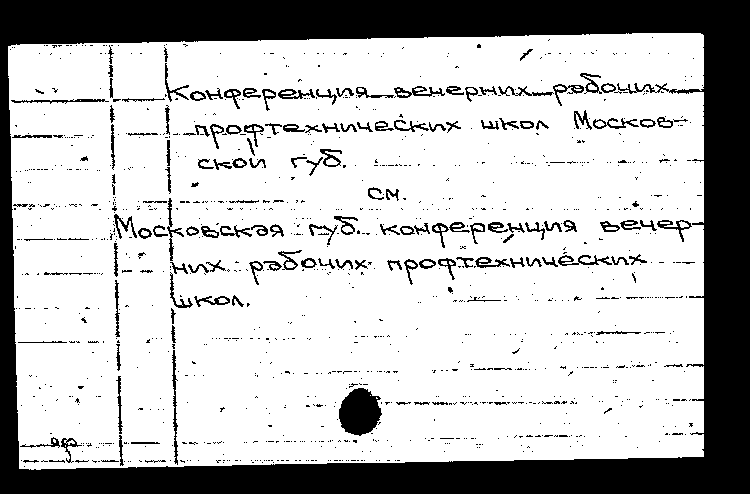 Конференция вечерних рабочих
профтехнических школ Москов-
ской губ.
см.
Московская губ. конференция вечер-
них рабочих профтехнических
школ.